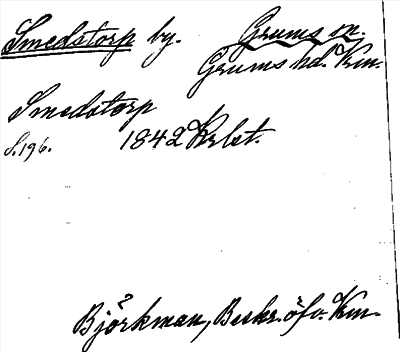 Smedstorp by. Grums sn.
Grums hd. Vrm.
Smedstorp
S. 196. 1842 Krlst.
Björkman, Beskr. öfv. Vrm.